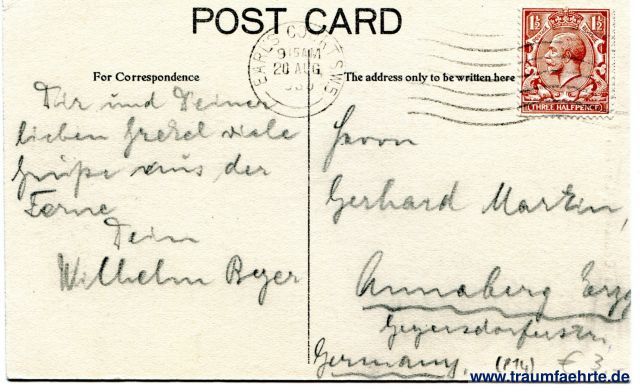 POST CARD
EARLS COURT S.W.5
9 15 AM
20 AUG
1½ 1½
THREE HALFPENCE
For Correspondence
The address only to be written here
Dir und Deiner
lieben Gretel viele
Grüße aus der
Ferne
Dein
Wilhelm Beyer
Herrn
Gerhard Martin,
Annaberg Erzg
Geyersdorferstr,
Germany.
www.traumfaehrte.de